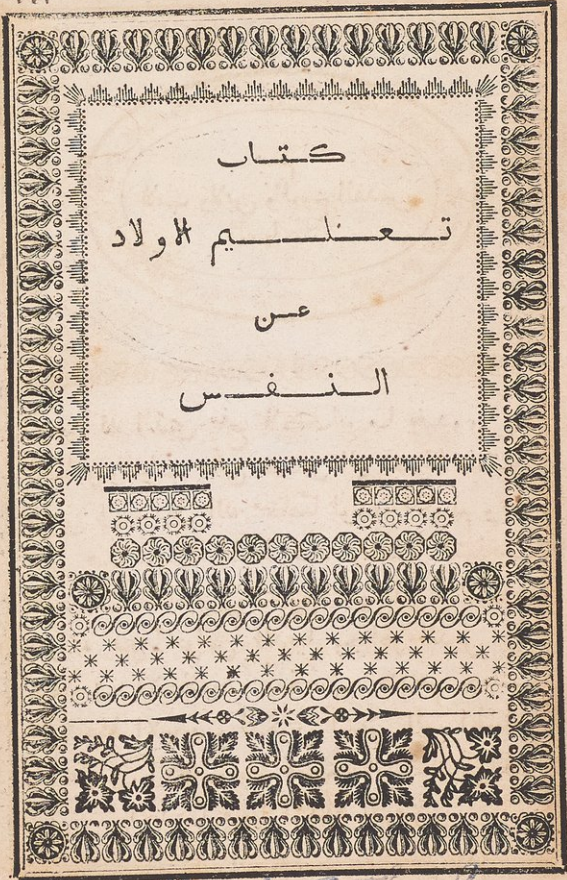 كتاب
تعليم الاولاد
عن
النفس